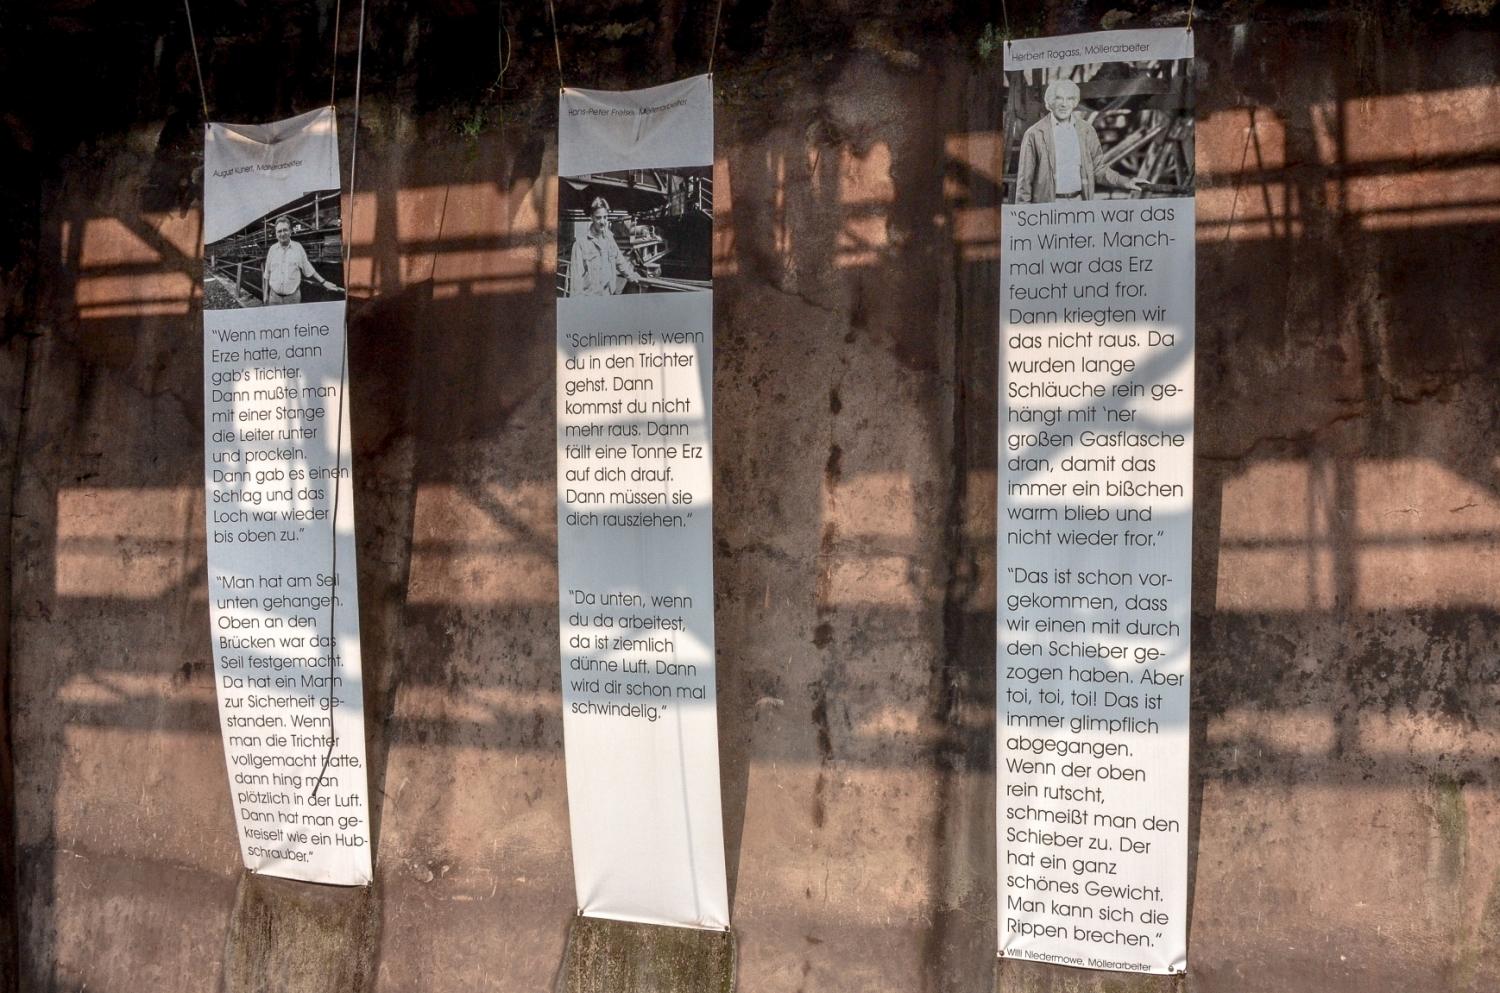 August Kunert, Möllerarbeiter
"Wenn man feine
Erze hatte, dann
gab's Trichter.
Dann mußte man
mit einer Stange
die Leiter runter
und prockeln.
Dann gab es einen
Schlag und das
Loch war wieder
bis oben zu."
"Man hat am Seil
unten gehangen.
Oben an den
Brücken war das
Seil festgemacht.
Da hat ein Mann
zur Sicherheit ge-
standen. Wenn
man die Trichter
vollgemacht hatte,
dann hing man
plötzlich in der Luft.
Dann hat man ge-
kreiselt wie ein Hub-
schrauber."
Hans-Peter Möllerarbeiter
"Schlimm ist, wenn
du in den Trichter
gehst. Dann
kommst du nicht
mehr raus. Dann
fällt eine Tonne Erz
auf dich drauf.
Dann müssen sie
dich rausziehen."
"Da unten, wenn
du da arbeitest,
da ist ziemlich
dünne Luft. Dann
wird dir schon mal
schwindelig."
Herbert Rogass, Möllerarbeiter
"Schlimm war das
im Winter. Manch-
mal war das Erz
feucht und fror.
Dann kriegten wir
das nicht raus. Da
wurden lange
Schläuche rein ge-
hängt mit 'ner
großen Gasflasche
dran, damit das
immer ein bißchen
warm blieb und
nicht wieder fror."
"Das ist schon vor-
gekommen, dass
wir einen mit durch
den Schieber ge-
zogen haben. Aber
toi, toi, toi! Das ist
immer glimpflich
abgegangen.
Wenn der oben
rein rutscht,
schmeißt man den
Schieber zu. Der
hat ein ganz
schönes Gewicht.
Man kann sich die
Rippen brechen."
Willi Niedermowe, Möllerarbeiter